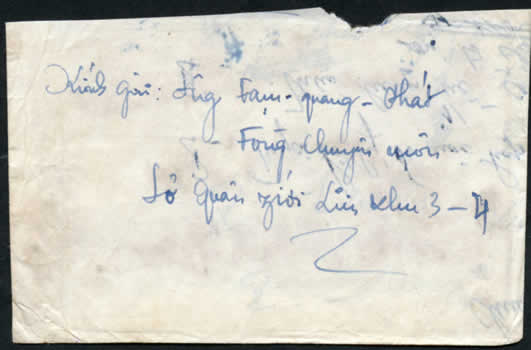 Kính gửi: Ông Phạm-quang-Phát
- Fòng chuyên môn
Sở Quân giới Liên khu 3-4